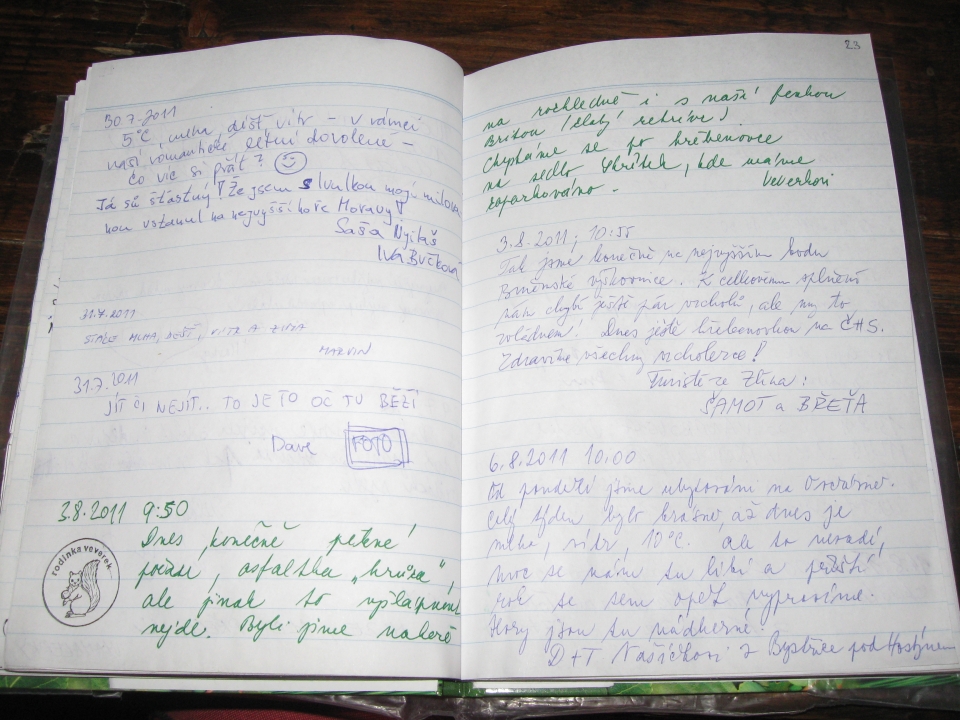 30.7.2011
5°C, mlha, déšť, vítr – v rámci
naší romantické letní dovolené –
co víc si přát?
Já sů šťastný! Že jsem s Ivulkou mojí milova
nou vstanul na nejvyšší hoře Moravy!
Saša Nyitaš
Iva Bučková
31.7.2011
STÁLE MLHA, DÉŠŤ, VÍTR A ZIMA
MARVIN
31.7.2011
JÍT ČI NEJÍT.. TO JE TO OČ TU BĚŽÍ
Dave FOTO
3.8.2011 9:50
Dnes konečně pěkné
počasí, asfaltka „hrůza",
ale jinak to vyšlápnout
nejde. Byli jsme
rodinka veverek
23
na rozhledně i s naší fenkou
Britou (zlatý retrívr).
Chystáme se po hřebenovce
na sedlo Skřítek, kde máme
zaparkováno.
Veverkovi
3.8.2011; 10:55
Tak jsme konečně na nejvyšším bodu
Brněnské výškovnice. K celkovému splnění
nám chybí ještě pár vrcholů, ale my to
zvládnem! Dnes ještě hřebenovkou na ČHS.
Zdravíme všechny vrcholovce!
Turisté ze Zlína:
ŠAMOT a BŘEŤA
6.8.2011 10.00
Od pondělí jsme ubytováni na Ovčárně.
Celý týden bylo krásně, až dnes je
mlha, vítr, 10°C. ale to nevadí,
moc se nám tu líbí a příští
rok se sem opět vypravíme.
Hory jsou tu nádherné.
D+T Našičkovi z Bystřice pod Hostýnem